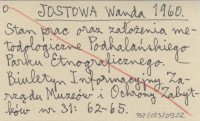 JOSTOWA Wanda 1960.
Stan prac oraz założenia me-
todologiczne Podhalańskiego
Parku Etnograficznego. –
Biuletyn Informacyjny Za-
rządu Muzeów i Ochrony Zabyt-
ków nr 31: 62-65.